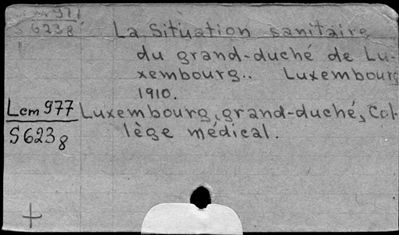 S6238 La Situation sanitaire
du grand-duché de Lu-
xembourg.. Luxembourg
1910.
Lcm977 Luxembourg, grand-duché, Col-
S6238 lège médical.
+